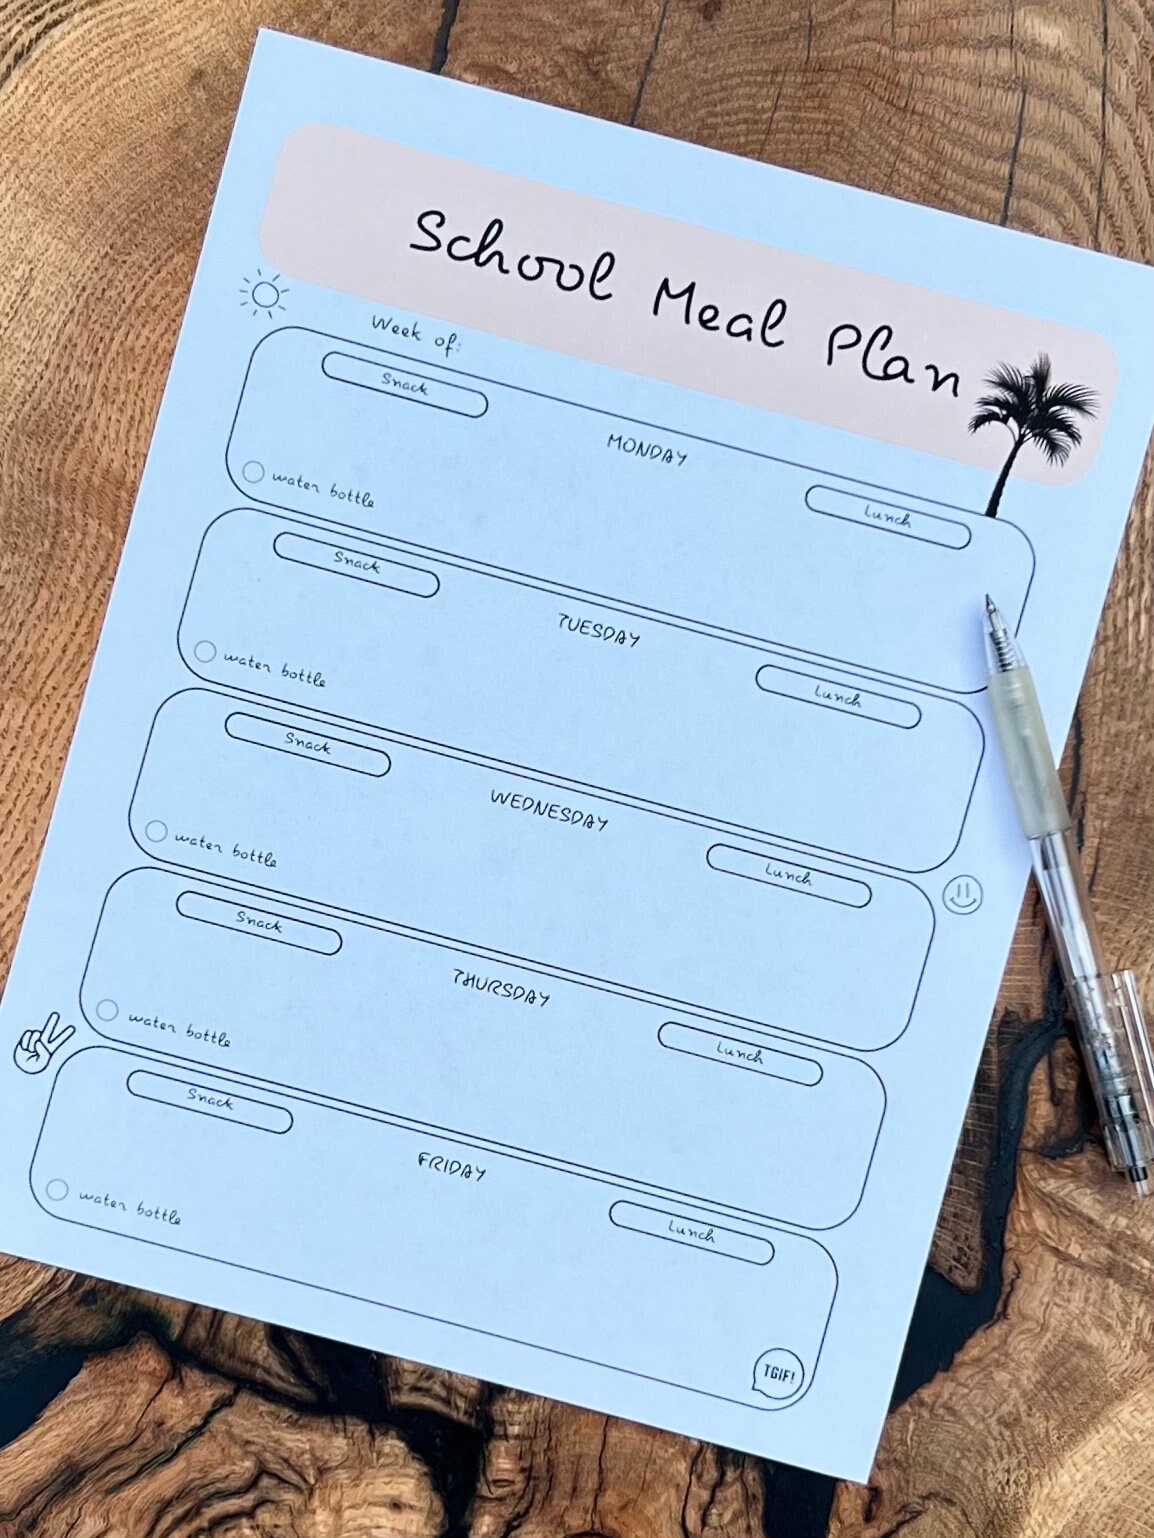 School Meal Plan
Week of:
Snack
MONDAY
Lunch
water bottle
Snack
TUESDAY
Lunch
water bottle
Snack
WEDNESDAY
Lunch
water bottle
Snack
THURSDAY
Lunch
water bottle
Snack
FRIDAY
Lunch
water bottle
TGIF!